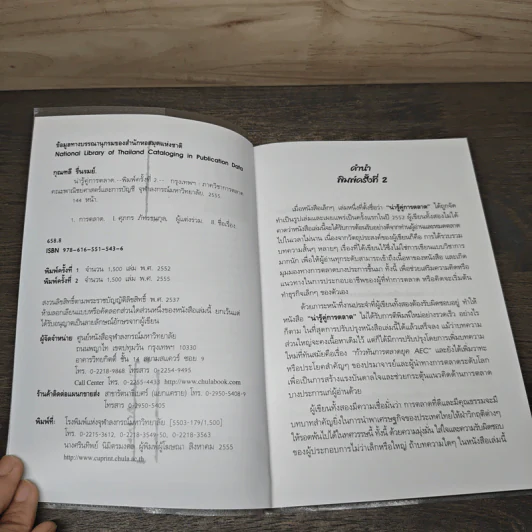 ข้อมูลทางบรรณานุกรมของสำนักหอสมุดแห่งชาติ
National Library of Thailand Cataloging in Publication Data
กุณฑลี รื่นรมย์.
น่ารู้คู่การตลาด.--พิมพ์ครั้งที่ 2.-- กรุงเทพฯ : ภาควิชาการตลาด
คณะพาณิชยศาสตร์และการบัญชี จุฬาลงกรณ์มหาวิทยาลัย, 2555.
144 หน้า.
1. การตลาด. I. ศุภกร ภัทรธนกุล, ผู้แต่งร่วม. II. ชื่อเรื่อง.
658.8
ISBN 978-616-551-543-6
พิมพ์ครั้งที่ 1 จำนวน 1,500 เล่ม พ.ศ. 2552
พิมพ์ครั้งที่ 2 จำนวน 1,500 เล่ม พ.ศ. 2555
สงวนลิขสิทธิ์ตามพระราชบัญญัติลิขสิทธิ์ พ.ศ. 2537
ห้ามลอกเลียนแบบหรือคัดลอกส่วนใดส่วนหนึ่งของหนังสือเล่มนี้ ยกเว้นแต่
ได้รับอนุญาตเป็นลายลักษณ์อักษรจากผู้เขียน
ผู้จัดจำหน่าย ศูนย์หนังสือจุฬาลงกรณ์มหาวิทยาลัย
ถนนพญาไท เขตปทุมวัน กรุงเทพฯ 10330
อาคารวิทยกิตติ์ ชั้น 14 สยามสแควร์ ซอย 9
โทร. 0-2218-9888 โทรสาร 0-2254-9495
Call Center โทร. 0-2255-4433 http://www.chulabook.com
ร้านค้าติดต่อแผนกขายส่ง สาขารัตนาธิเบศร์ (แยกแคราย) โทร. 0-2950-5408-9
โทรสาร 0-2950-5405
พิมพ์ที่ : โรงพิมพ์แห่งจุฬาลงกรณ์มหาวิทยาลัย [5503-179/1,500]
โทร. 0-2215-3612, 0-2218-3549-50, 0-2218-3563
นางศรินทิพย์ นิมิตรมงคล ผู้พิมพ์ผู้โฆษณา สิงหาคม 2555
http://www.cuprint.chula.ac.th
คำนำ
พิมพ์ครั้งที่ 2
เมื่อหนังสือเล็กๆ เล่มหนึ่งที่ตั้งชื่อว่า "น่ารู้คู่การตลาด" ได้ถูกจัด
ทำเป็นรูปเล่มและเผยแพร่เป็นครั้งแรกในปี 2552 ผู้เขียนทั้งสองไม่ได้
คาดว่าหนังสือเล่มนี้จะได้รับการต้อนรับอย่างดีจากท่านผู้อ่านและหมดตลาด
ไปในเวลาไม่นาน เนื่องจากวัตถุประสงค์ของผู้เขียนก็คือ การได้รวบรวม
บทความสั้นๆ หลายๆ เรื่องที่ได้เขียนไว้ซึ่งไม่ใช่การเขียนแบบวิชาการ
มากนัก เพื่อให้ผู้อ่านทุกระดับสามารถเข้าถึงเนื้อหาของหนังสือ และเกิด
มุมมองทางการตลาดบางประการขึ้นมา ทั้งนี้ เพื่อช่วยเสริมความคิดหรือ
แนวทางในการประกอบอาชีพของผู้ที่ทำการตลาด หรือคิดจะเริ่มต้น
ทำธุรกิจเล็กๆ ของตัวเอง
ด้วยภาระหน้าที่งานประจำที่ผู้เขียนทั้งสองต้องรับผิดชอบอยู่ ทำให้
หนังสือ "น่ารู้คู่การตลาด" ไม่ได้รับการตีพิมพ์ใหม่อย่างรวดเร็ว อย่างไร
ก็ตาม ในที่สุดการปรับปรุงหนังสือเล่มนี้ได้แล้วเสร็จลง แม้ว่าบทความ
ส่วนใหญ่จะคงเนื้อหาเดิมไว้ แต่ก็ได้มีการปรับปรุงโดยการเพิ่มบทความ
ใหม่ที่ทันสมัยคือเรื่อง "ก้าวทันการตลาดยุค AEC" และยังได้เพิ่มวาทะ
หรือประโยคสำคัญๆ ของปรมาจารย์และผู้นำทางการตลาดระดับโลก
เพื่อเป็นการสร้างแรงบันดาลใจและช่วยกระตุ้นแนวคิดด้านการตลาด
บางประการแก่ผู้อ่านด้วย
ผู้เขียนทั้งสองมีความเชื่อมั่นว่า การตลาดที่ดีและมีคุณธรรมจะมี
บทบาทสำคัญยิ่งในการนำพาเศรษฐกิจของประเทศไทยให้ฝ่าวิกฤติต่างๆ
ให้รอดพ้นไปได้ในทศวรรษนี้ ทั้งนี้ ด้วยความมุ่งมั่น ใส่ใจและความรับผิดชอบ
ของผู้ประกอบการไม่ว่าเล็กหรือใหญ่ ถ้าบทความใดๆ ในหนังสือเล่มนี้